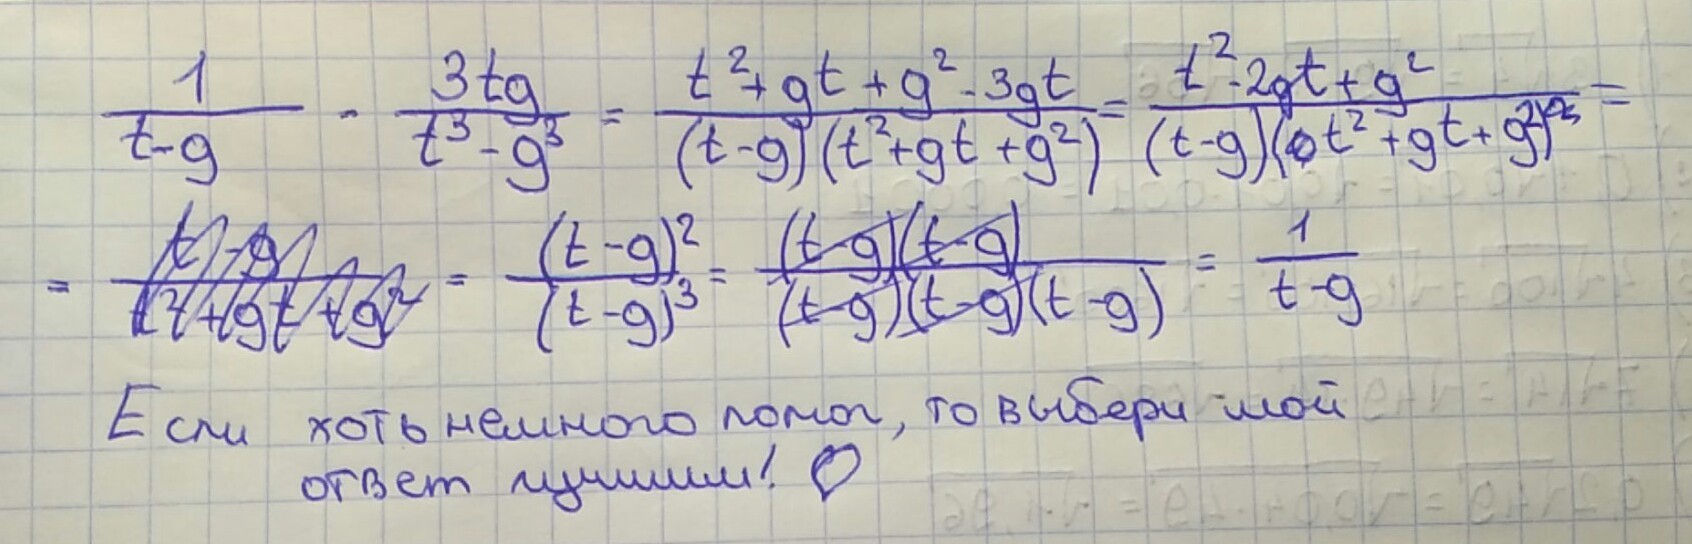 1/(t-g) - 3tg/(t³-g³) = (t²+gt+g²-3gt)/((t-g)(t²+gt+g²)) = (t²-2gt+g²)/((t-g)(t²+gt+g²)) =
= = (t-g)²/(t-g)³ = (t-g)(t-g)/((t-g)(t-g)(t-g)) = 1/(t-g)
Если хоть немного помог, то выбери мой
ответ лучшим!